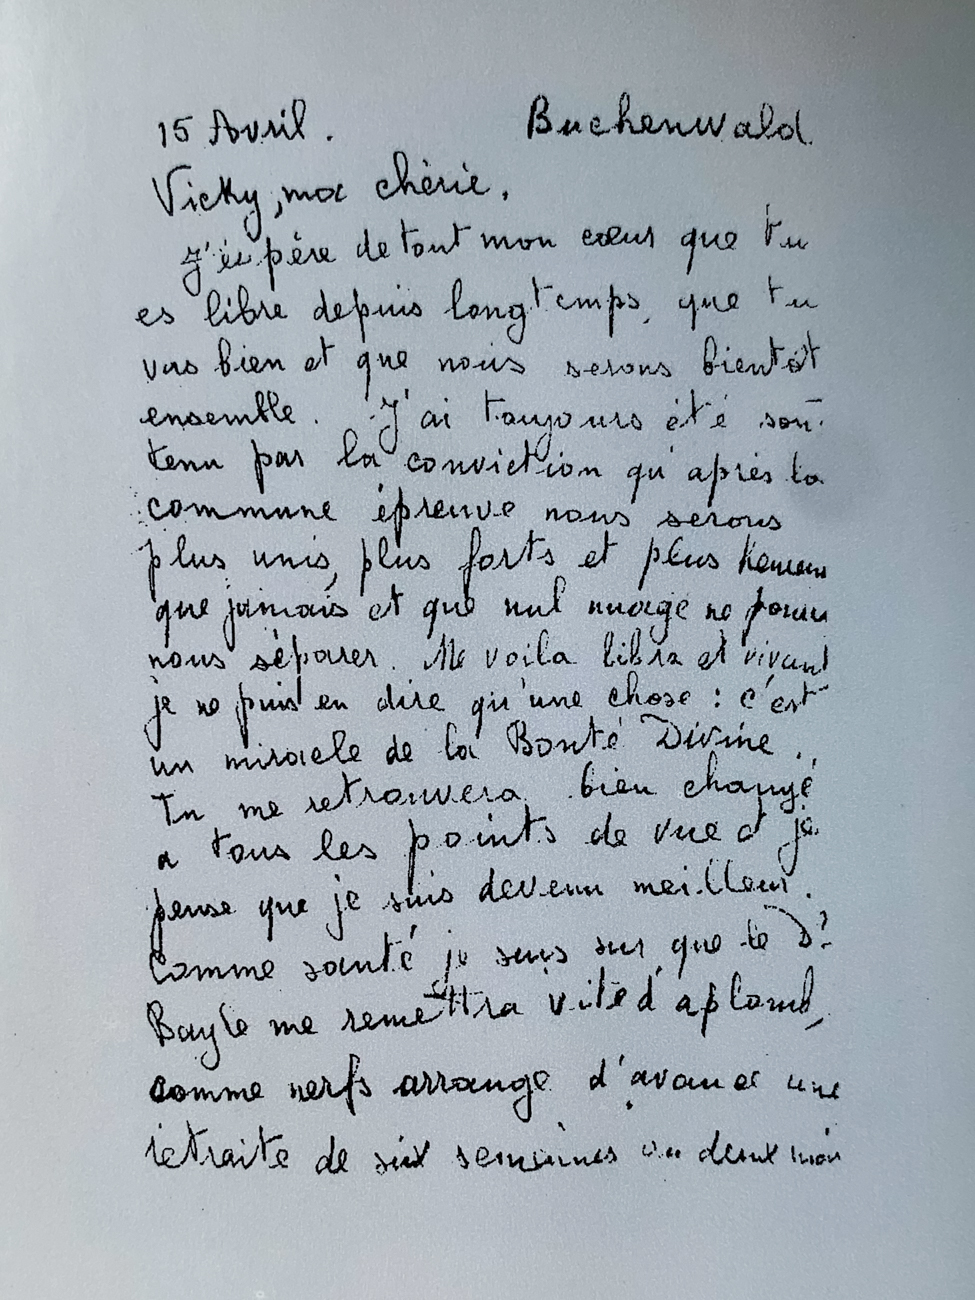 15 Avril. Buchenwald
Vicky, ma chèrie,
J'éspère de tout mon cœur que tu
es libre depuis longtemps, que tu
vas bien et que nous serons bientôt
ensemble. J'ai toujours été sou-
tenu par la conviction qu'après la
commune épreuve nous serons
plus unis, plus forts et plus
que jamais et que nul nuage ne pourra
nous séparer. Me voila libre et vivant
je ne puis en dire qu'une chose : c'est
un miracle de la Bonté Divine.
Tu me retrouvera bien changé
a tous les points de vue et je
pense que je suis devenu meilleur.
Comme santé je suis sur que le Dr
Bayle me remettra vite d'aplomb,
comme nerfs arrange d'avance une
retraite de six semaines ou deux mois